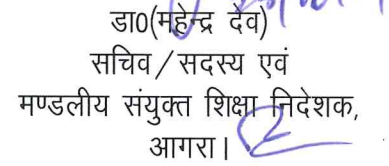 डा०(महेन्द्र देव)
सचिव/सदस्य एवं
मण्डलीय संयुक्त शिक्षा निदेशक,
आगरा।